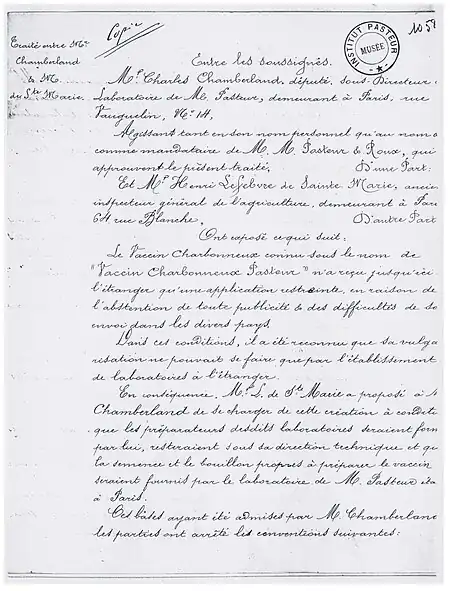 Copie
INSTITUT PASTEUR
MUSÉE
Traité entre Mr.
Chamberland
& M.
de Ste. Marie.
Entre les soussignés.
Mr. Charles Chamberland, député, sous-Directeur
Laboratoire de M. Pasteur, demeurant à Paris, rue
Vauquelin, No. 14,
Agissant tant en son nom personnel qu'au nom
comme mandataire de M. M. Pasteur & Roux, qui
approuvent le présent traité, D'une Part.
Et Mr. Henri Lefebvre de Sainte Marie, ancien
inspecteur général de l'agriculture, demeurant à
64 rue Blanche, D'autre Part
Ont exposé ce qui suit:
Le Vaccin Charbonneux connu sous le nom de
"Vaccin Charbonneux Pasteur" n'a reçu jusqu'ici
l'étranger qu'une application restreinte, en raison de
l'abstention de toute publicité & des difficultés de
envoi dans les divers pays.
Dans ces conditions, il a été reconnu que sa vulga
risation ne pouvait se faire que par l'établissement
de laboratoires à l'étranger.
En conséquence, Mr. L. de Ste. Marie a proposé à
Chamberland de se charger de cette création à
que les préparateurs desdits laboratoires seraient
par lui, resteraient sous sa direction technique et
la semence et le bouillon propres à préparer le vaccin
seraient fournis par le laboratoire de M. Pasteur
à Paris.
Ces bases ayant été admises par M. Chamberland
les parties ont arrêté les conventions suivantes: